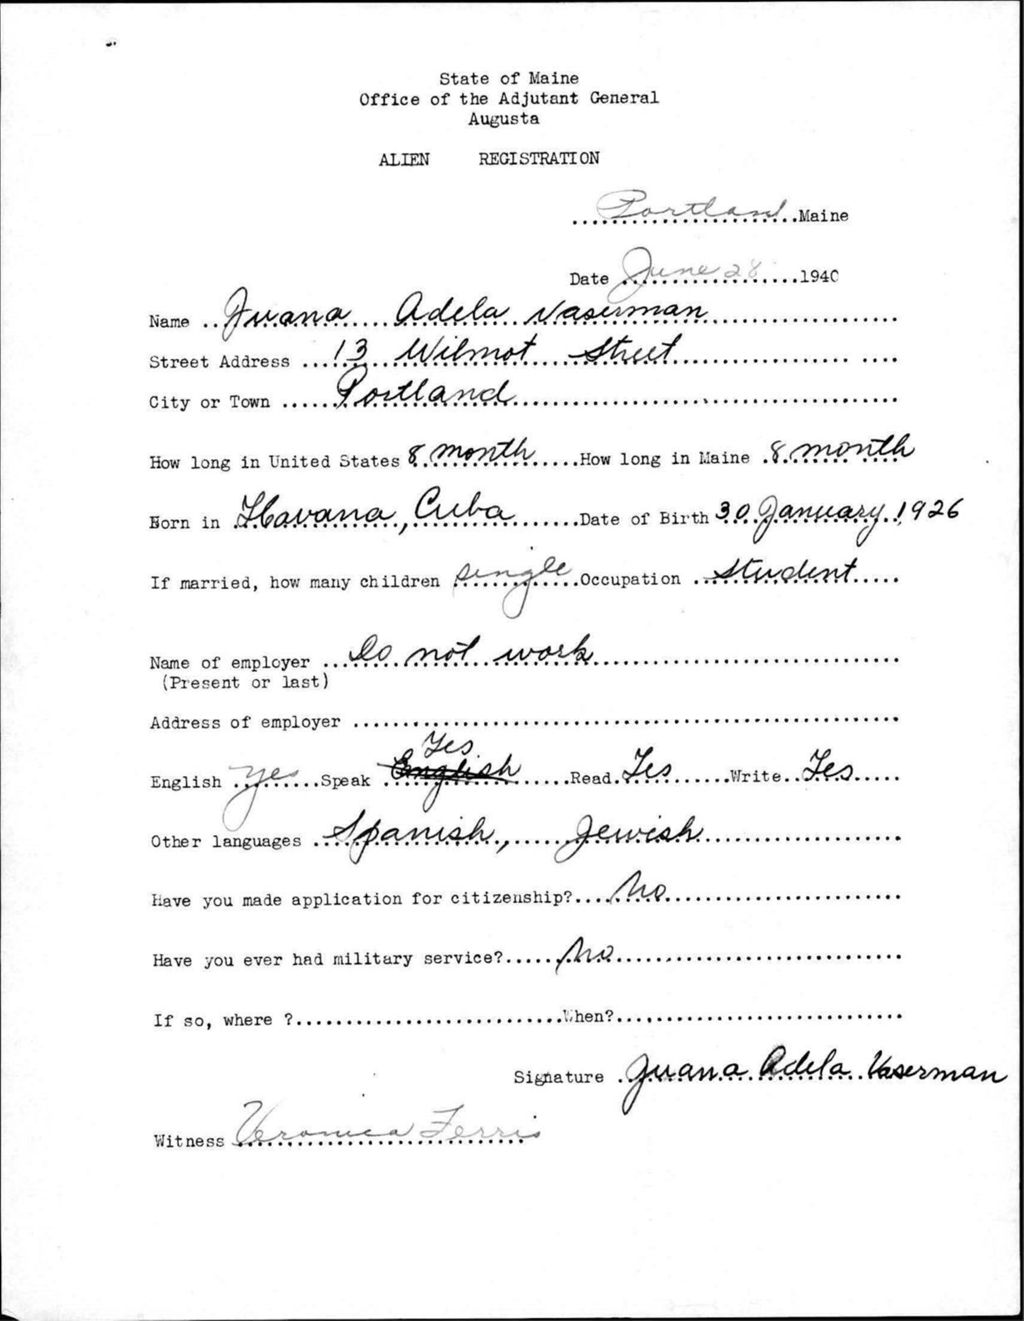 State of Maine
Office of the Adjutant General
Augusta
ALIEN REGISTRATION
Portland Maine
Date June 28 1940
Name Juana Adela Vaserman
Street Address 13 Wilmot Street
City or Town Portland
How long in United States 8 month How long in Maine 8 month
Born in Havana, Cuba Date of Birth 30 January, 1926
If married, how many children single Occupation Student
Name of employer Do not work
(Present or last)
Address of employer
Yes
English yes Speak English Read Yes Write Yes
Other languages Spanish, Jewish
Have you made application for citizenship? No
Have you ever had military service? No
If so, where ? When?
Signature Juana Adela Vaserman
Witness Veronica Ferris